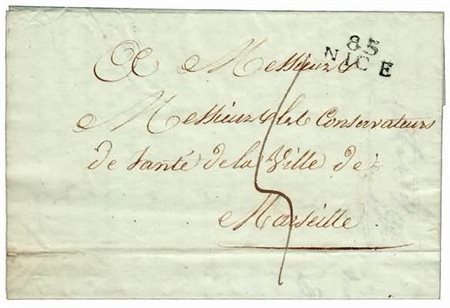 85
NICE
A Messieurs
Messieurs les Conservateurs
de Santé de la Ville de
Marseille
5